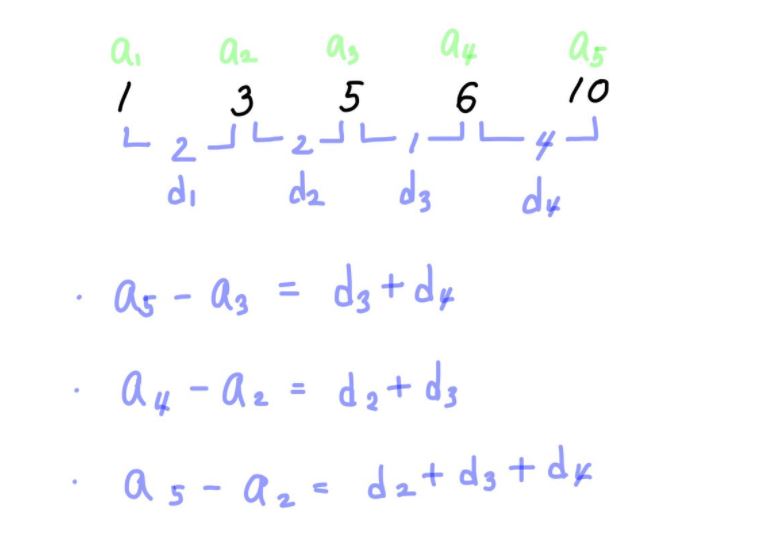 a₁ a₂ a₃ a₄ a₅
1 3 5 6 10
2 2 1 4
d₁ d₂ d₃ d₄
· a₅ - a₃ = d₃ + d₄
· a₄ - a₂ = d₂ + d₃
· a₅ - a₂ = d₂ + d₃ + d₄